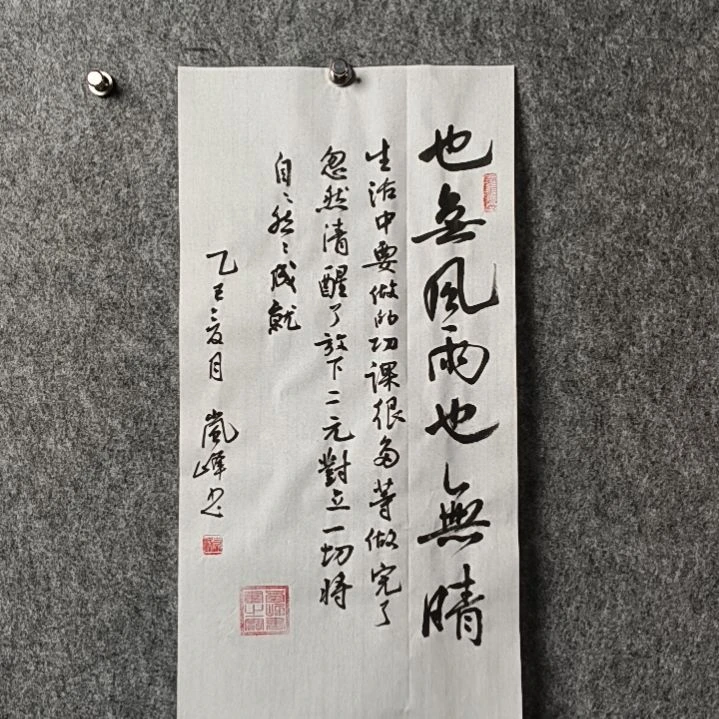 也無風雨也無晴
生活中要做的功课很多等做完了
忽然清醒了放下二元對立一切將
自々然々成就
乙巳夏月 嵐峰書